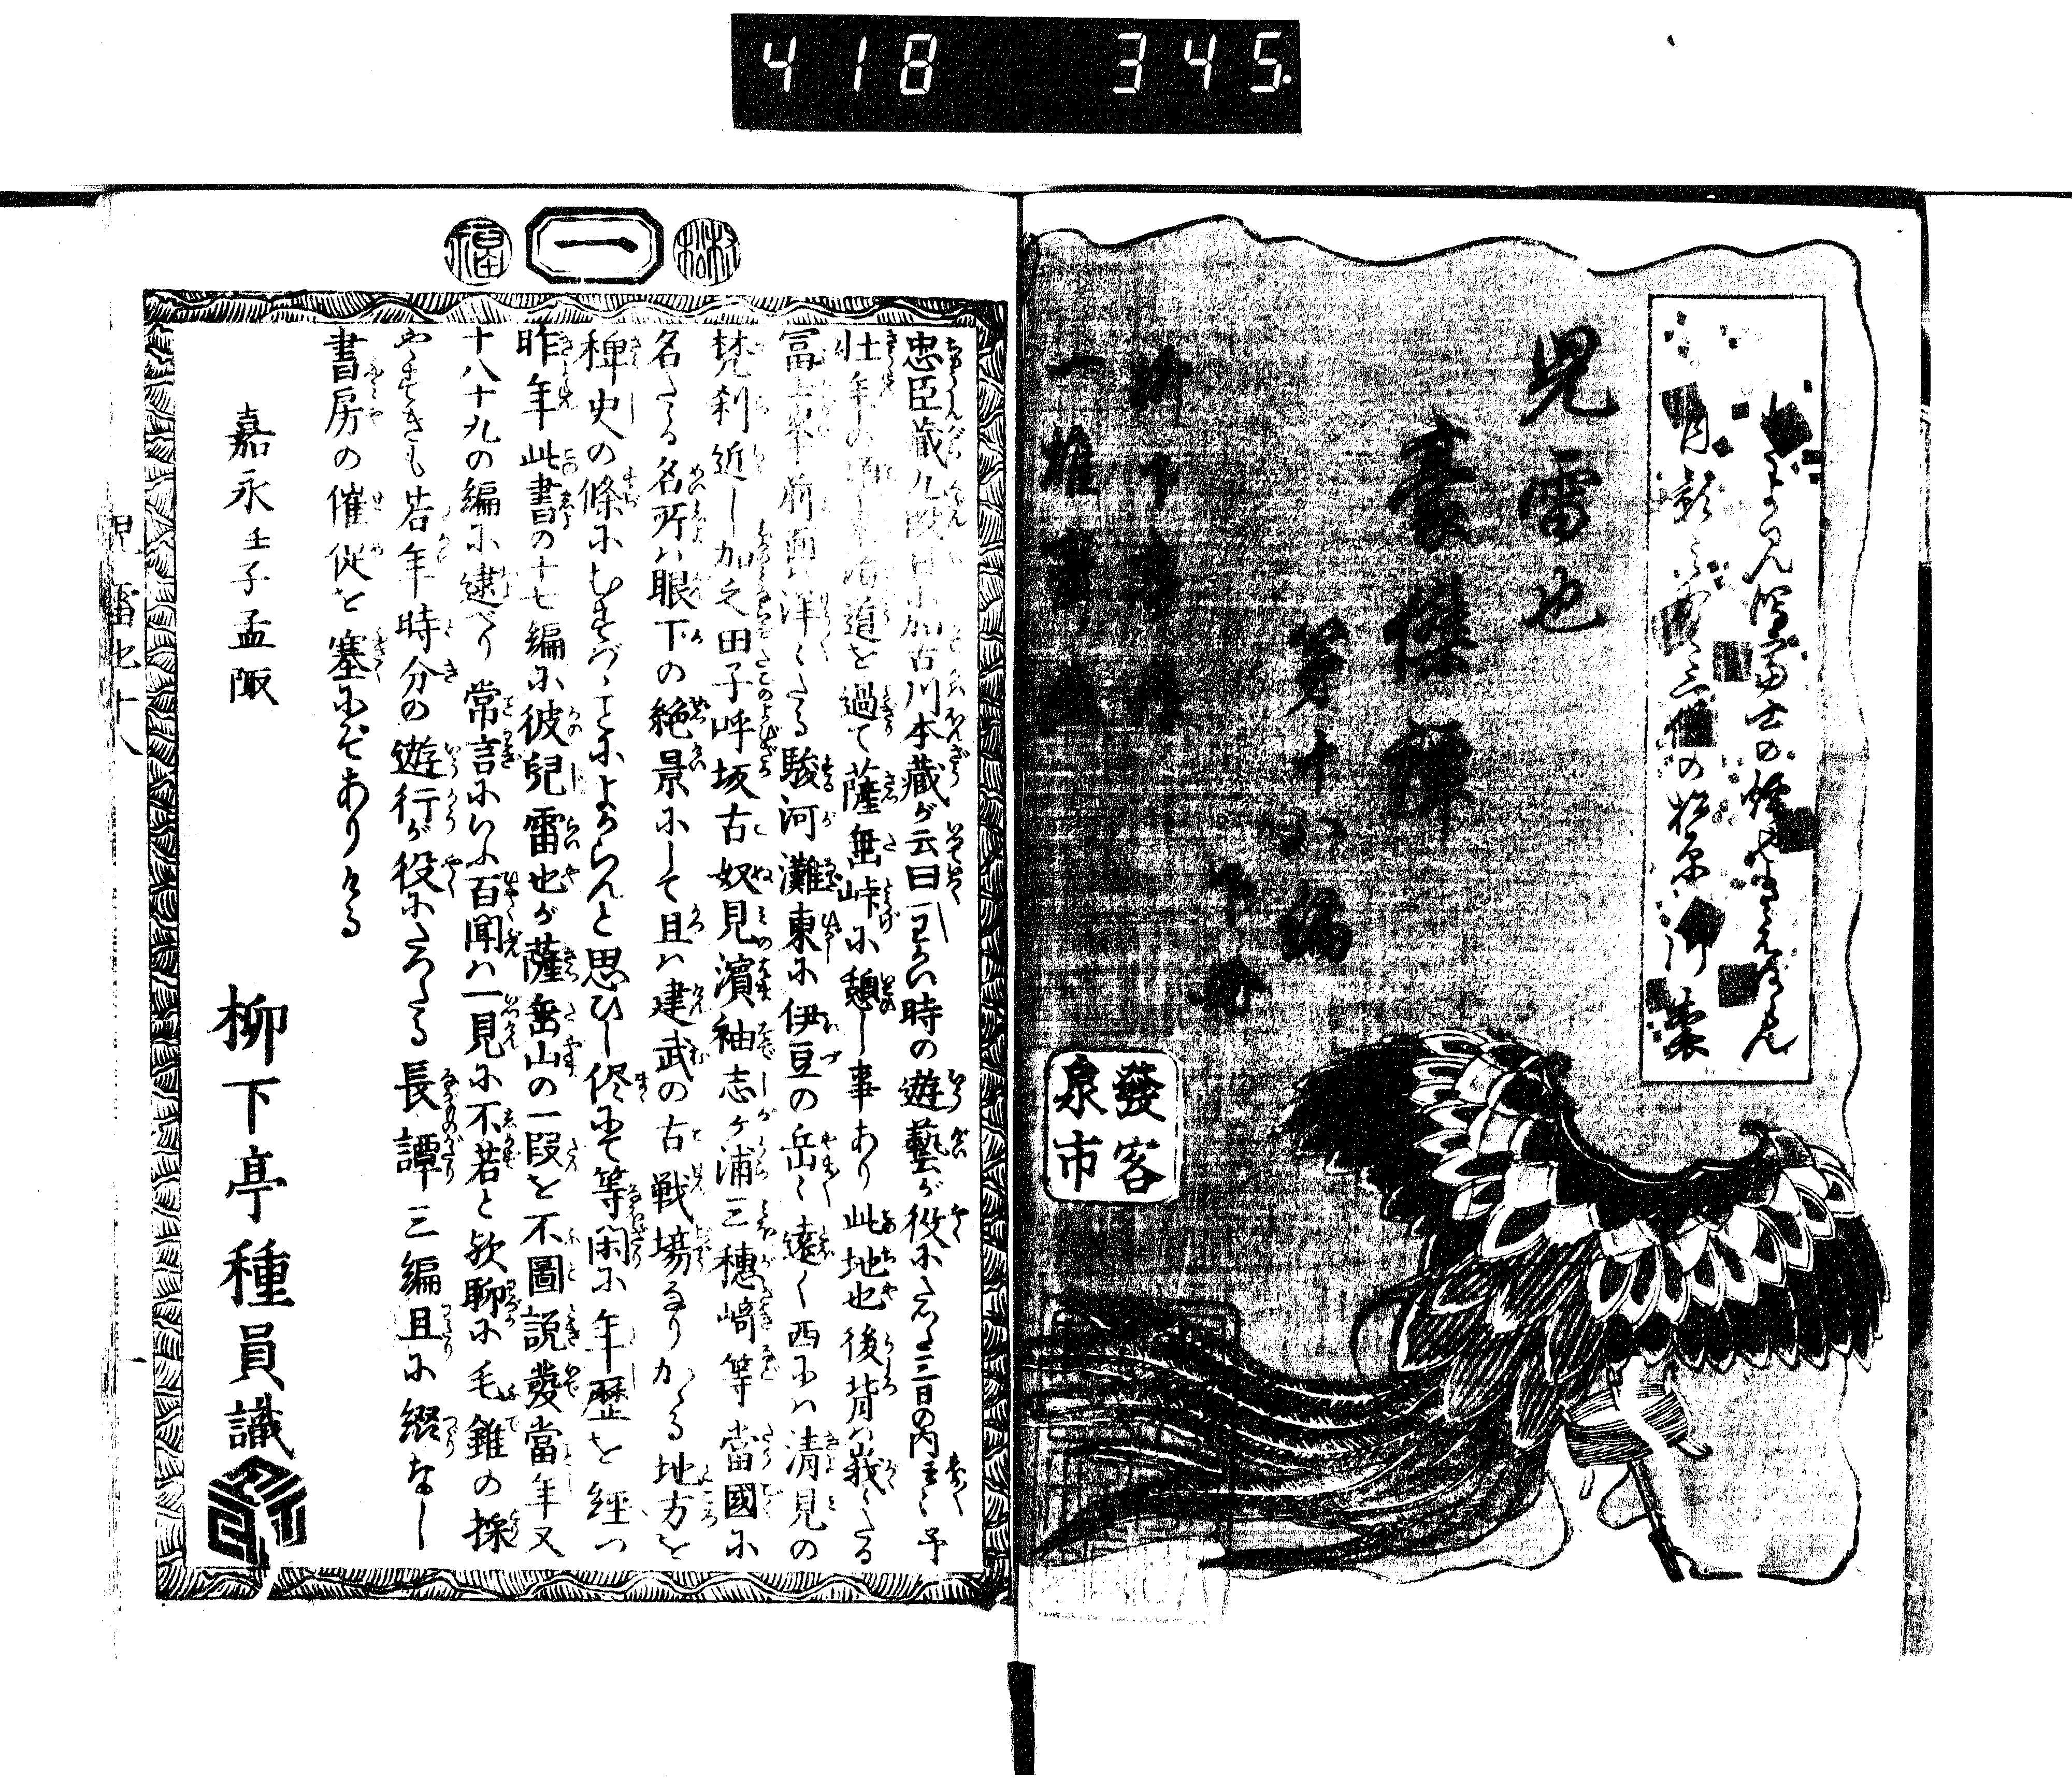 418 345
児雷也
豪傑譚
第十八編
下冊
柳下亭作
一雄齋画
發客
泉市
一
忠臣藏九段目に加古川本藏が云曰わかい時の遊藝が役にたつと三日の内
壮年の 海道を過て薩埵峠に憩し事あり此地也後背は峩々たる
冨士峯前面は洋々たる駿河灘東に伊豆の岳々遠く西には清見の
梵刹近し加之田子呼坂古奴見濱袖志ヶ浦三穗﨑等當國に
名たる名所は眼下の絶景にして且は建武の古戦場なりかゝる地方を
稗史の條にむすびなばよからんと思ひし侭にて等閑に年歴を經つ
昨年此書の十七編に彼兒雷也が薩埵山の一段を不圖説發當年又
十八十九の編に逮べり常言にいふ百聞は一見に不若と欤聊に毛錐の採
やすきも若年時分の遊行が役にたつたる長譚三編且に綴なし
書房の催促を塞にぞありける
嘉永壬子孟陬
柳下亭種員識
兒雷也十八